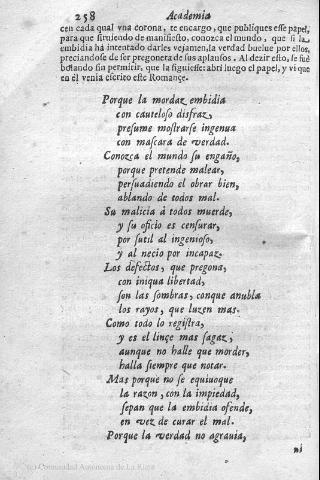 258 Academia
cen cada qual vna corona, te encargo, que publiques esse papel,
para que siruiendo de manifiesto, conozca el mundo, que si la
embidia hà intentado darles vejamen, la verdad buelue por ellos,
preciandose de ser pregonera de sus aplausos. Al dezir esto, se fuè
bolando sin permitir, que la siguiesse: abri luego el papel, y vi que
en èl venia escrito este Romançe.
Porque la mordaz embidia
con cauteloso disfraz,
presume mostrarse ingenua
con mascara de verdad.
Conozca el mundo su engaño,
porque pretende malear,
persuadiendo el obrar bien,
ablando de todos mal.
Su malicia à todos muerde,
y su oficio es censurar,
por sutil al ingenioso,
y al necio por incapaz.
Los defectos, que pregona,
con iniqua libertad,
son las sombras, conque anubla
los rayos, que luzen mas.
Como todo lo registra,
y es el linçe mas sagaz,
aunque no halle que morder,
halla siempre que notar.
Mas porque no se equiuoque
la razon, con la impiedad,
sepan que la embidia ofende,
en vez de curar el mal.
Porque la verdad no agrauia,
ni
(c) Comunidad Autónoma de La Rioja